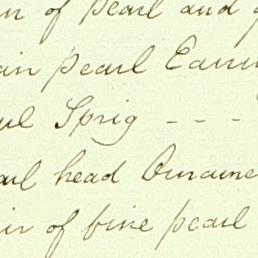 of pearl and
pearl Earri
Sprig - - -
head Ornamen
of fine pearl